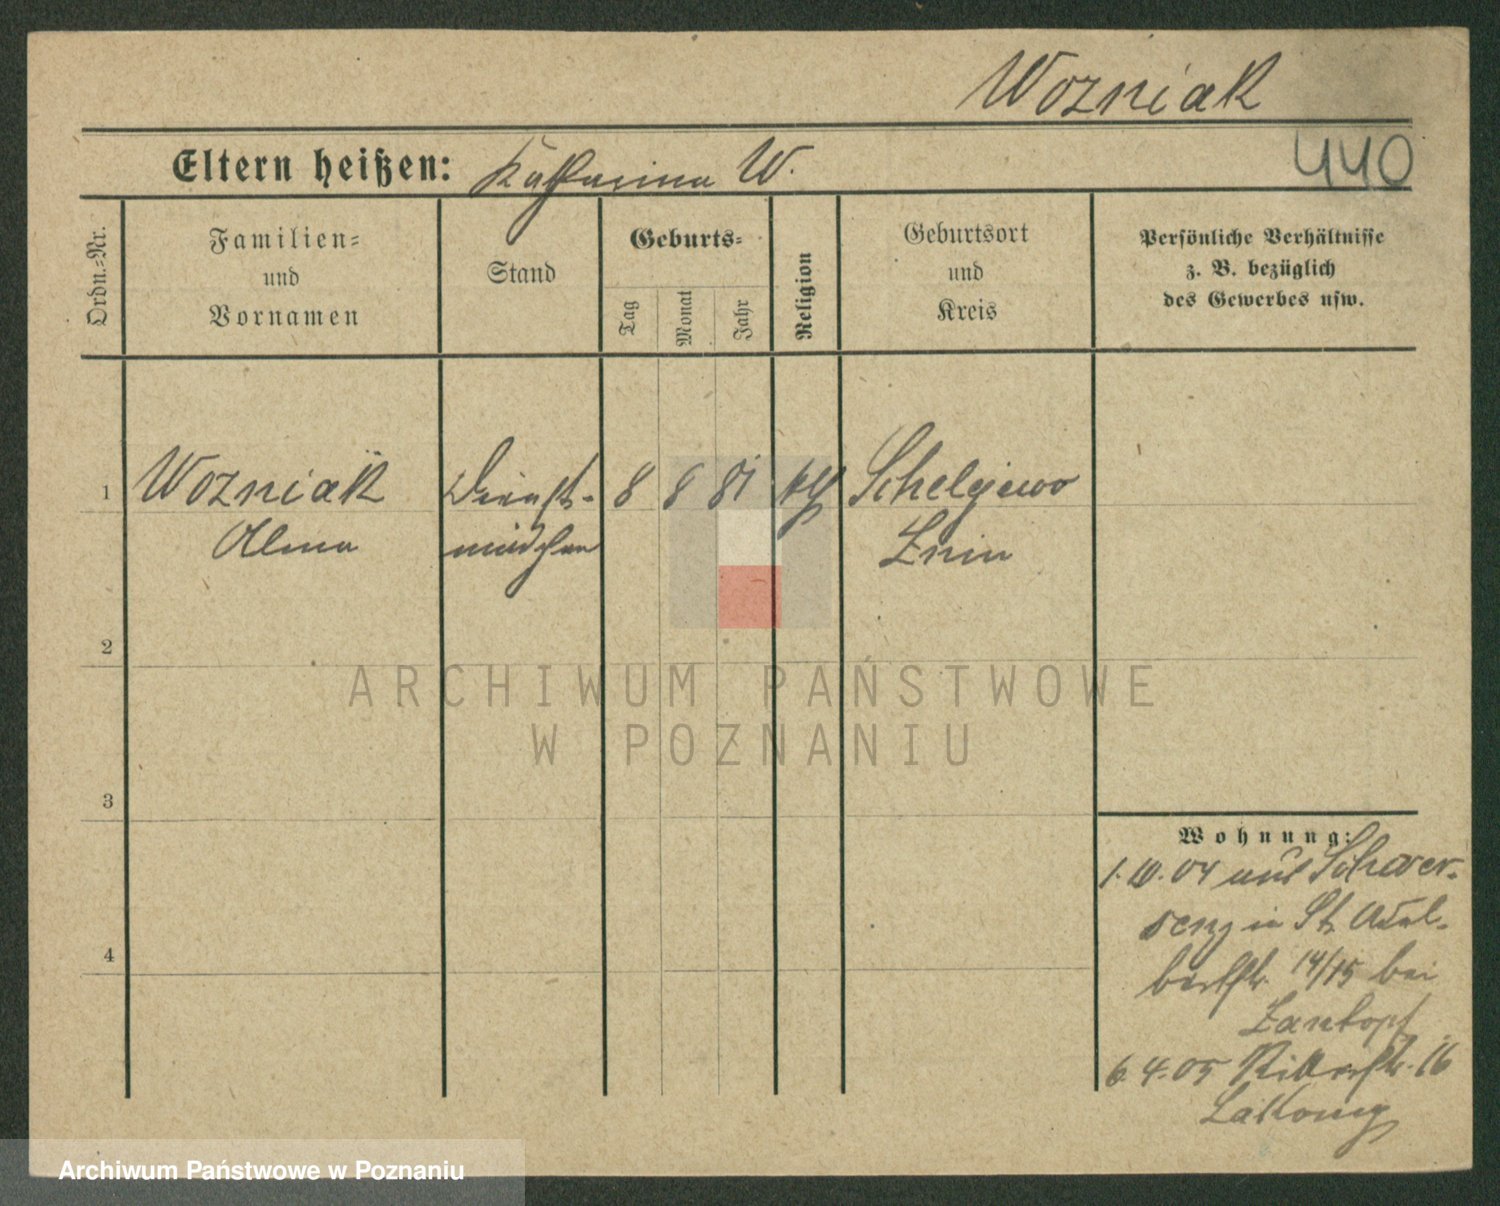 Wozniak
440
Eltern heißen: Katharina W.
Ordn.-Nr.
Familien-
und
Vornamen
Stand
Geburts-
Tag
Monat
Jahr
Religion
Geburtsort
und
Kreis
Persönliche Verhältnisse
z. B. bezüglich
des Gewerbes usw.
1 Wozniak Dienst- 8 8 81 kth Schelejewo
mädchen Znin
2
3
4
Wohnung:
1.10.04 aus Schwer-
senz in St. Adal-
bertstr. 14/15 bei
Zantopf
6.4.05 Ritterstr. 16
ARCHIWUM PAŃSTWOWE
W POZNANIU
Archiwum Państwowe w Poznaniu